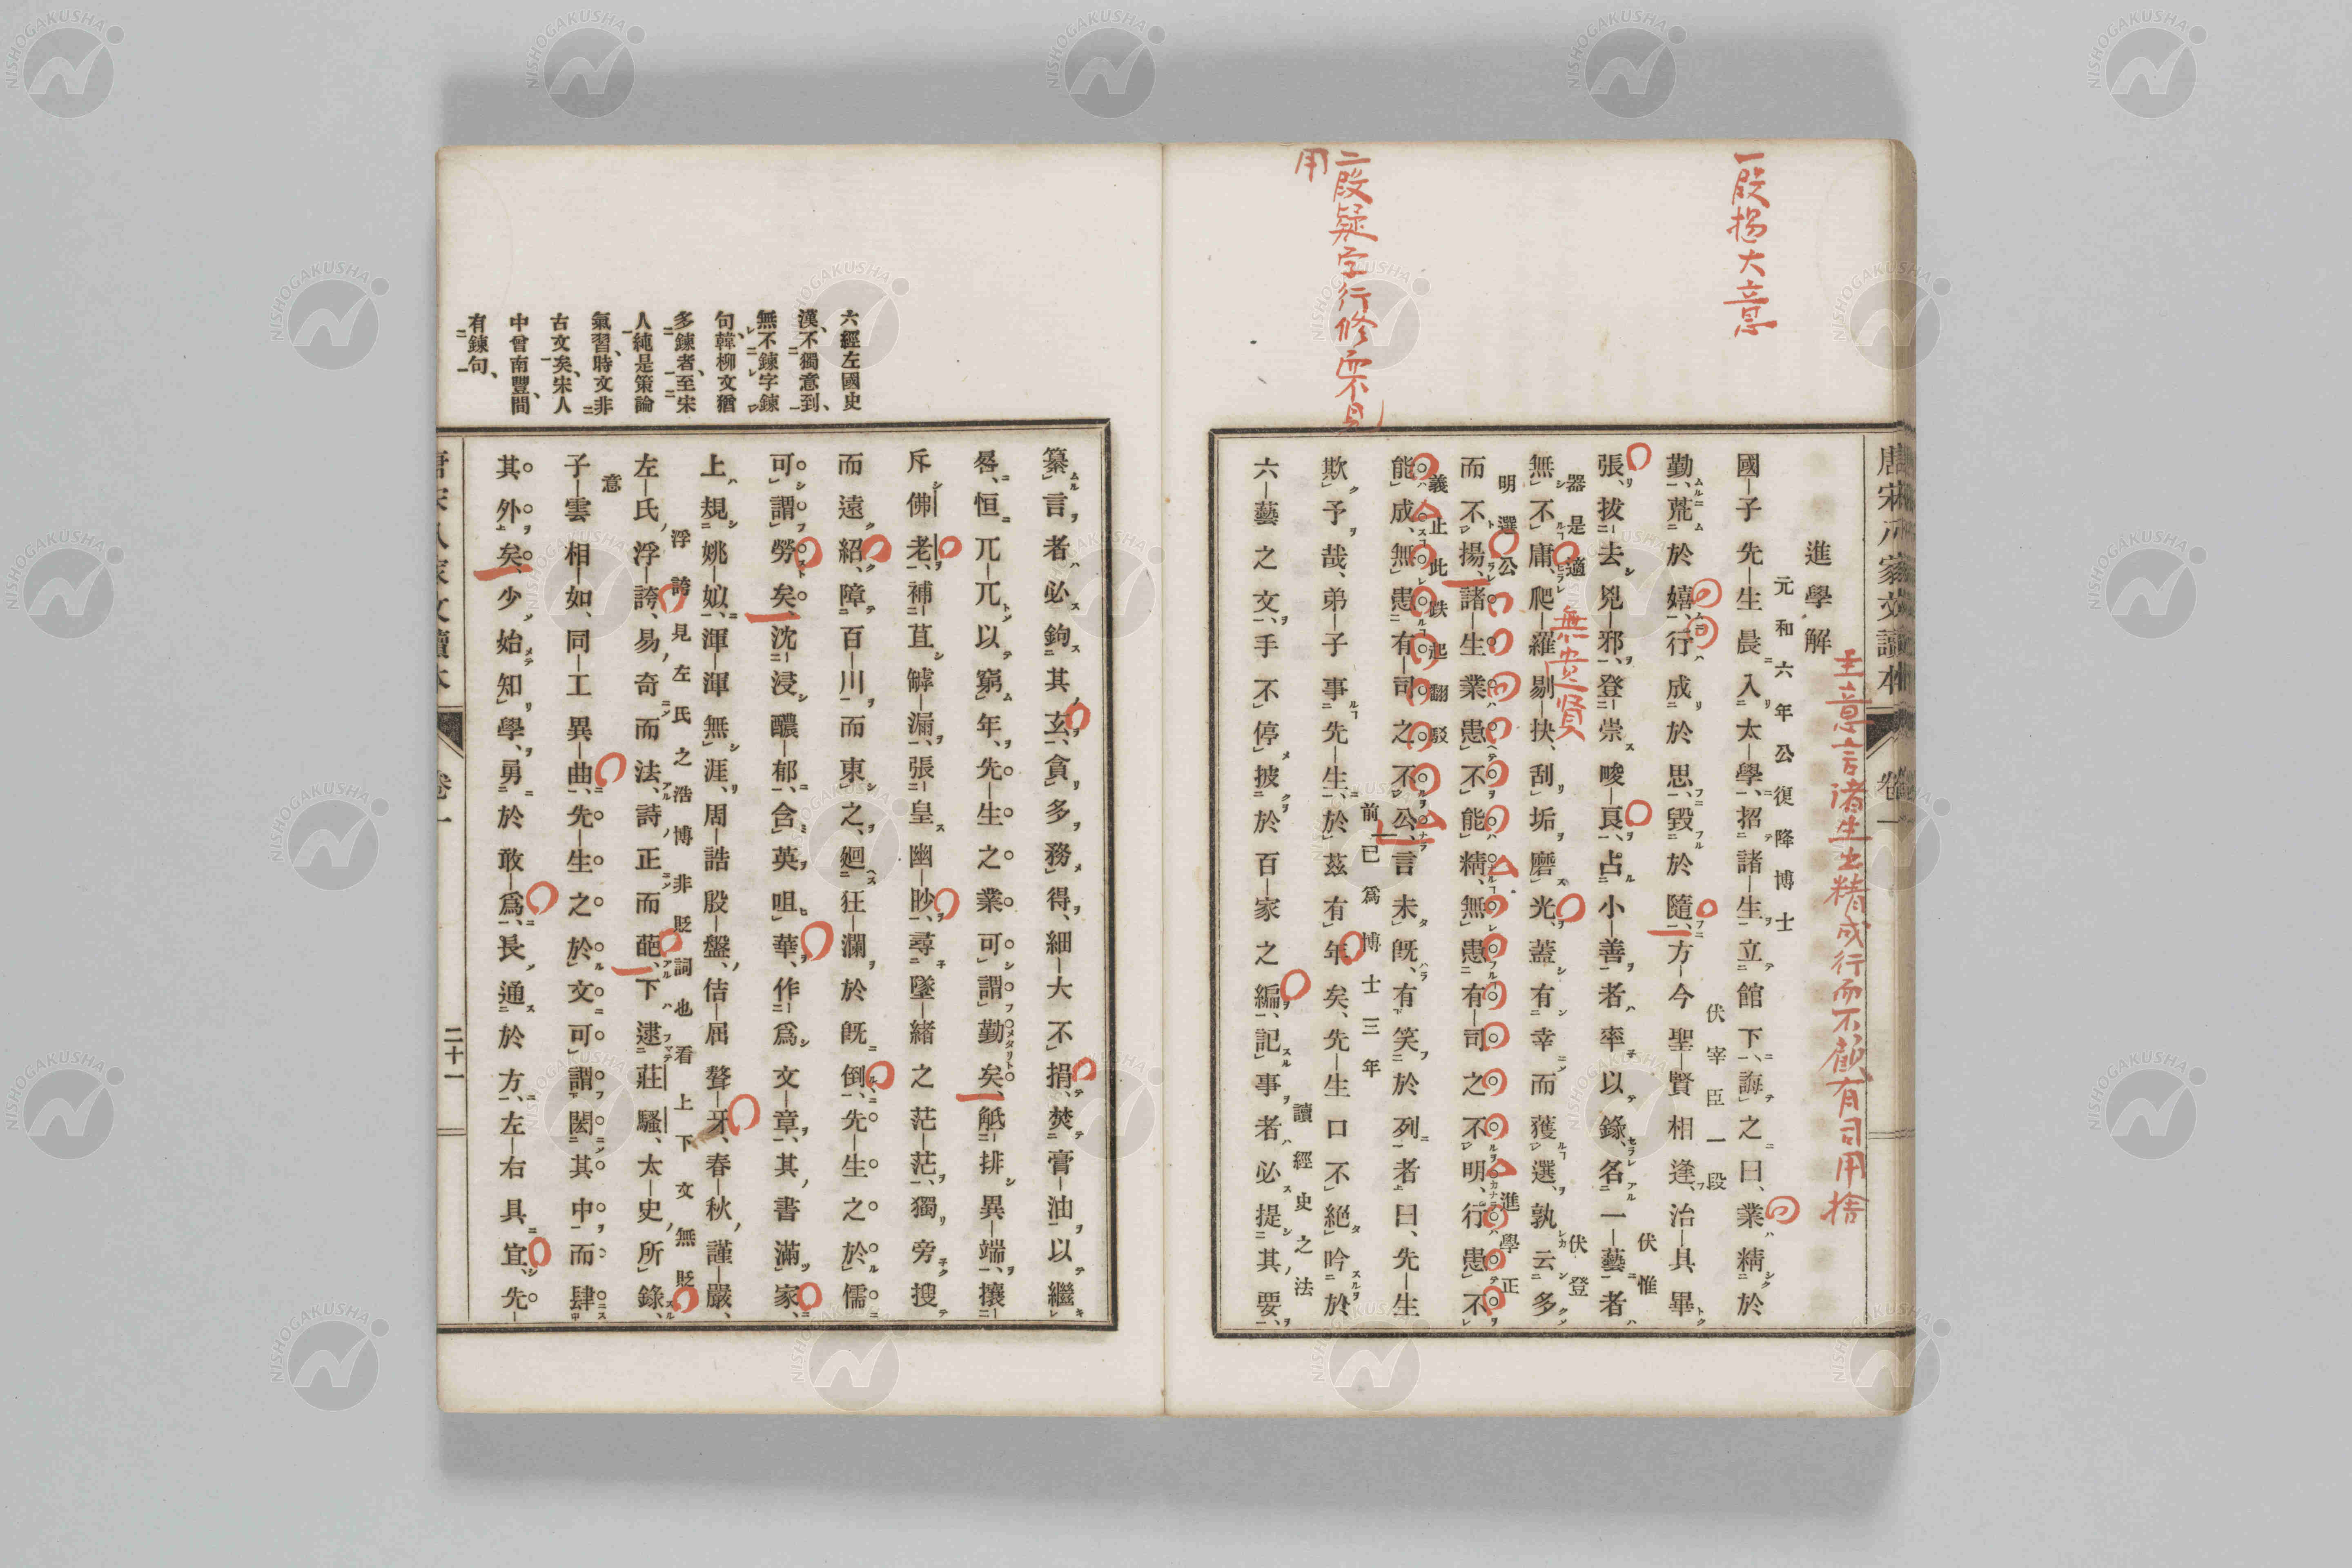 唐宋八家文讀本 卷一
一段揭大意
二段疑字行修而不見
用
主意言諸生業精成行而不顧有司用捨
進學解
元和六年公復降博士
國子先生晨入太學、招諸生立館下、誨之曰、業精於
勤、荒於嬉、行成於思、毀於隨、方今聖賢相逢、治具畢
伏宰臣一段
張、拔去兇邪、登崇畯良、占小善者率以錄、名一藝者
伏惟
無不庸、爬羅剔抉、刮垢磨光、蓋有幸而獲選、孰云多
器是適
伏登
無遺賢
而不揚、諸生業患不能精、無患有司之不明、行患不
明選公
進學正
能成、無患有司之不公、言未既、有笑於列者曰、先生
義止此跌起翻駁
欺予哉、弟子事先生、於茲有年矣、先生口不絕吟於
前已為博士三年
六藝之文、手不停披於百家之編、記事者必提其要、
讀經史之法
六經左國史
漢、不獨意到、
無不鍊字鍊
句、韓柳文猶
多鍊者、至宋
人純是策論
氣習、時文非
古文矣、宋人
中曾南豐、間
有鍊句、
纂言者必鉤其玄、貪多務得、細大不捐、焚膏油以繼
晷、恒兀兀以窮年、先生之業可謂勤矣、觝排異端、攘
斥佛老、補苴罅漏、張皇幽眇、尋墜緒之茫茫、獨旁搜
而遠紹、障百川而東之、廻狂瀾於既倒、先生之於儒
可謂勞矣、沈浸醲郁、含英咀華、作為文章、其書滿家、
上規姚姒、渾渾無涯、周誥殷盤、佶屈聱牙、春秋謹嚴、
左氏浮誇、易奇而法、詩正而葩、下逮莊騷、太史所錄、
浮誇見左氏之浩博非貶詞也看上下文無貶
意
子雲相如、同工異曲、先生之於文可謂閎其中而肆
其外矣、少始知學、勇於敢為、長通於方、左右具宜、先
卷一
二十一